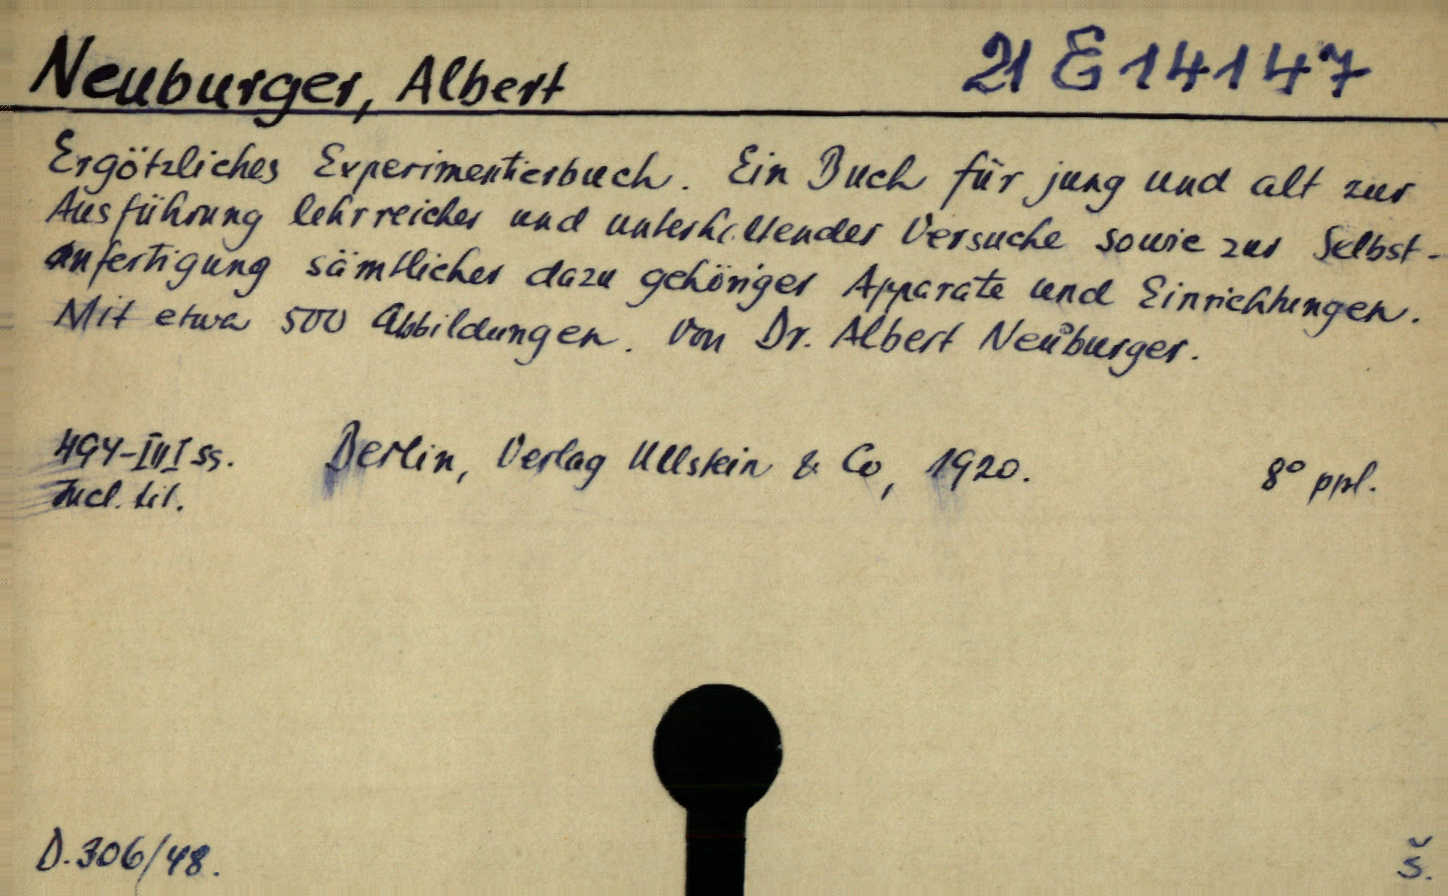 Neuburger, Albert
21 E 14147
Ergötzliches Experimentierbuch. Ein Buch für jung und alt zur
Ausführung lehrreicher und unterhaltender Versuche sowie zur Selbst-
anfertigung sämtlicher dazu gehöriger Apparate und Einrichtungen.
Mit etwa 500 Abbildungen. Von Dr. Albert Neuburger.
494-III ss. Berlin, Verlag Ullstein & Co, 1920. 8° ppl.
Incl. tit.
D. 306/48.
Š.